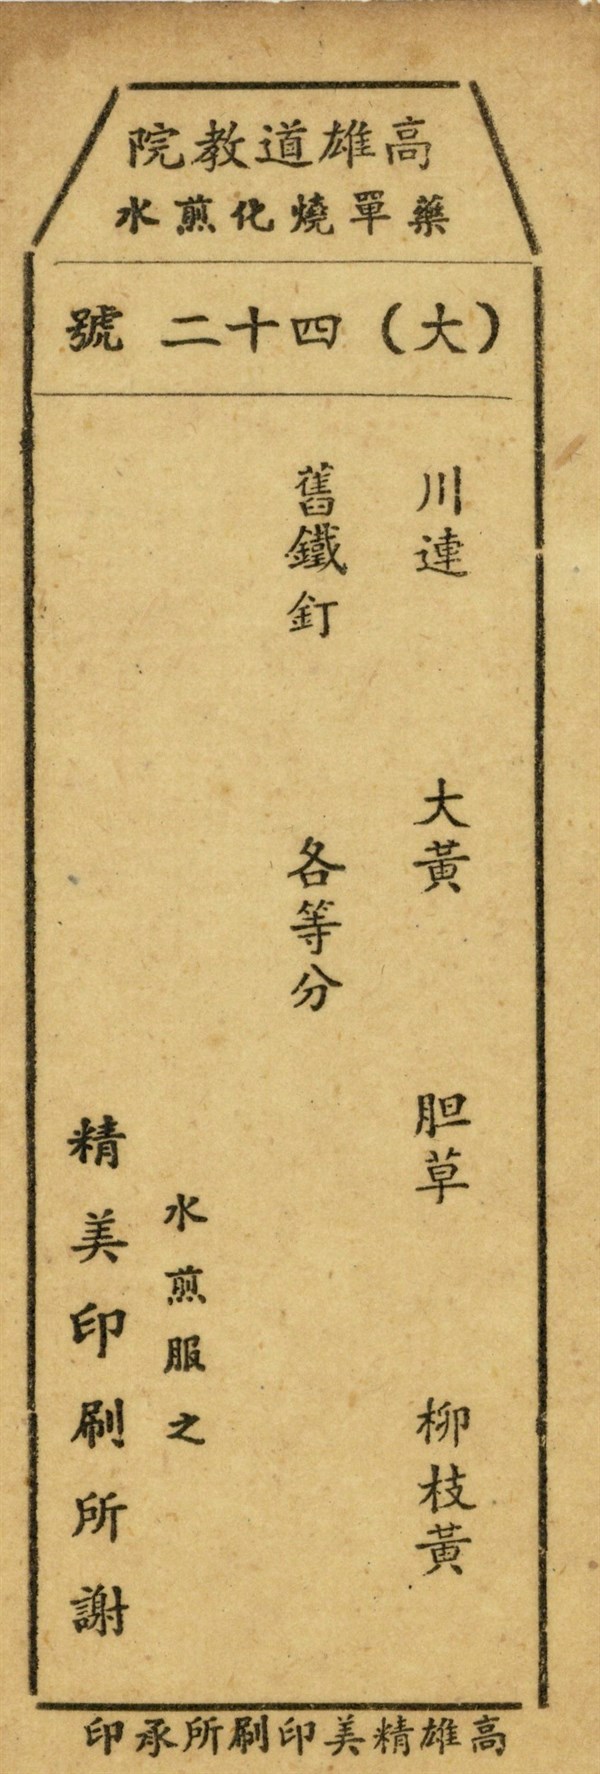 高雄道教院
藥單燒化煎水
（大）四十二號
川連 大黃 胆草 柳枝黃
舊鐵釘 各等分
水煎服之
精美印刷所謝
高雄精美印刷所承印